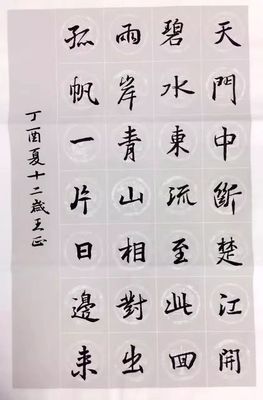 天門中斷楚江開
碧水東流至此回
兩岸青山相對出
孤帆一片日邊来
丁酉夏十二歲王正